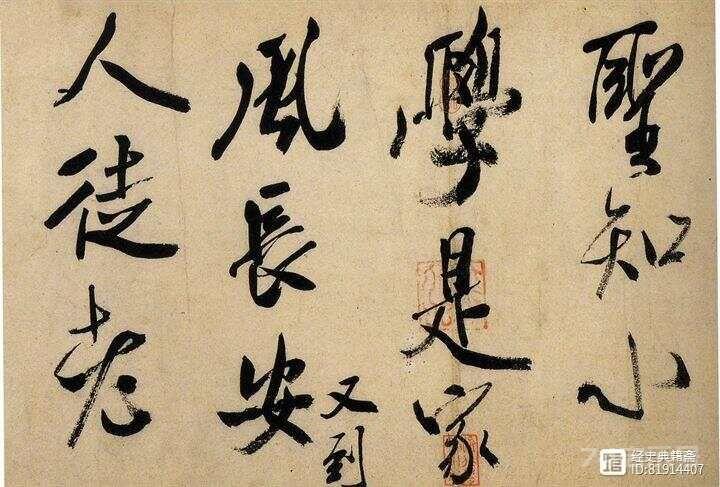 聖知小
學是家
風長安
又到
人徒老
经史典籍斋
ID:81914407